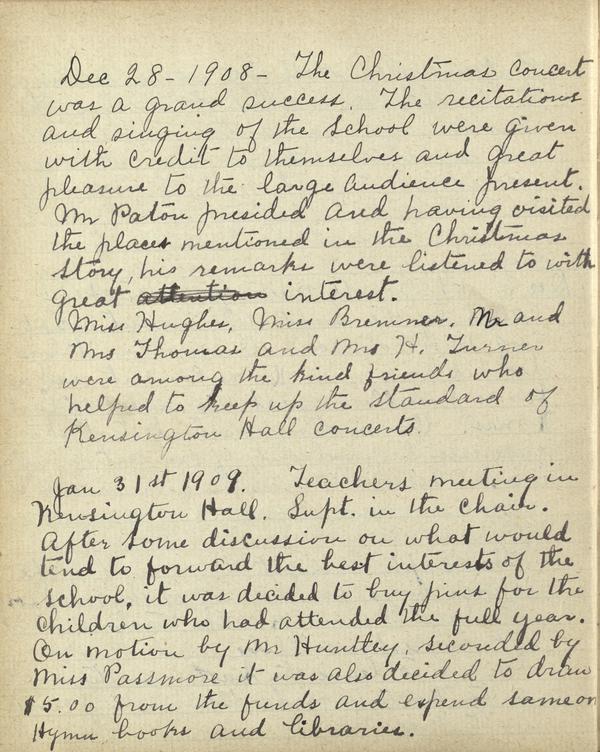 Dec 28 - 1908 - The Christmas concert
was a grand success. The recitations
and singing of the School were given
with credit to themselves and great
pleasure to the large audience present.
Mr Paton presided and having visited
the places mentioned in the Christmas
Story, his remarks were listened to with
great attention interest.
Miss Hughes, Miss Bremner, Mr and
Mrs Thomas and Mrs H. Turner
were among the kind friends who
helped to keep up the standard of
Kensington Hall concerts.
Jan 31st 1909. Teachers meeting in
Kensington Hall. Supt. in the chair.
After some discussion on what would
tend to forward the best interests of the
School, it was decided to buy pins for the
children who had attended the full year.
On motion by Mr Huntley, seconded by
Miss Passmore it was also decided to draw
$5.00 from the funds and expend same on
Hymn books and libraries.